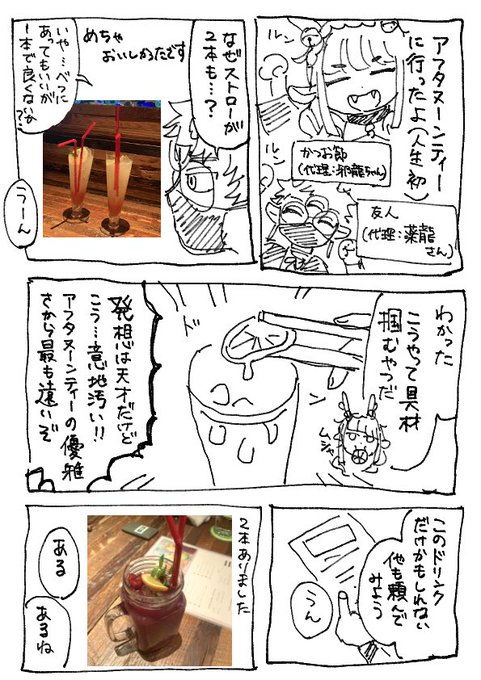 アフタヌーンティー
に行ったよ(人生初)
ルン
ルン
かつお節
(代理:邪龍ちゃん)
友人
(代理:薬龍
さん)
なぜストローが
2本も…?
めちゃ
おいしかったです
いや…べつに
あってもいいが
1本で良くないか
?
うーん
わかった
こうやって具材
掴むやつだ
ムシャ
ド
ン
発想は天才だけど
こう…意地汚い!!
アフタヌーンティーの優雅
さから最も遠いぞ
このドリンク
だけかもしれない
他も頼んで
みよう
うん
2本ありました
ある
あるね